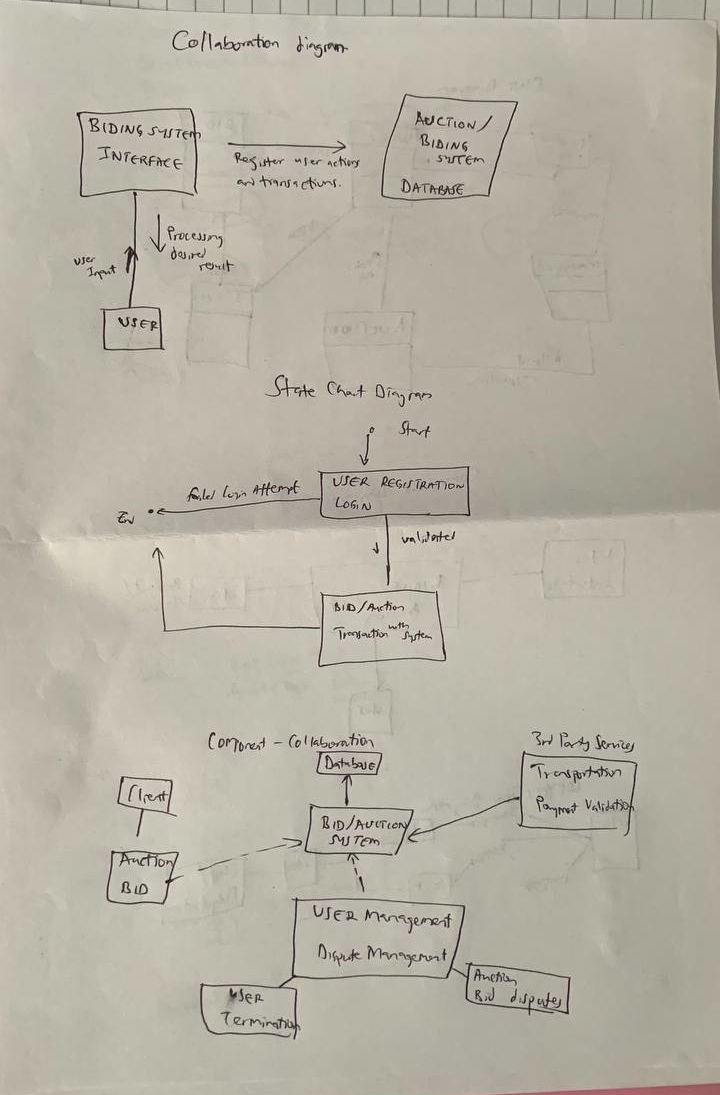 Collaboration diagram
BIDING SYSTEM
INTERFACE
Register user actions
and transactions.
AUCTION/
BIDING
SYSTEM
DATABASE
user
Input
Processing
desired
result
USER
State Chart Diagram
Start
USER REGISTRATION
LOGIN
failed Login Attempt
validated
BID/Auction
Transaction with System
Component - Collaboration
Database
3rd Party Services
Transportation
Payment Validation
Client
BID/AUCTION
SYSTEM
Auction
BID
USER Management
Dispute Management
USER
Termination
Auction
Bid disputes